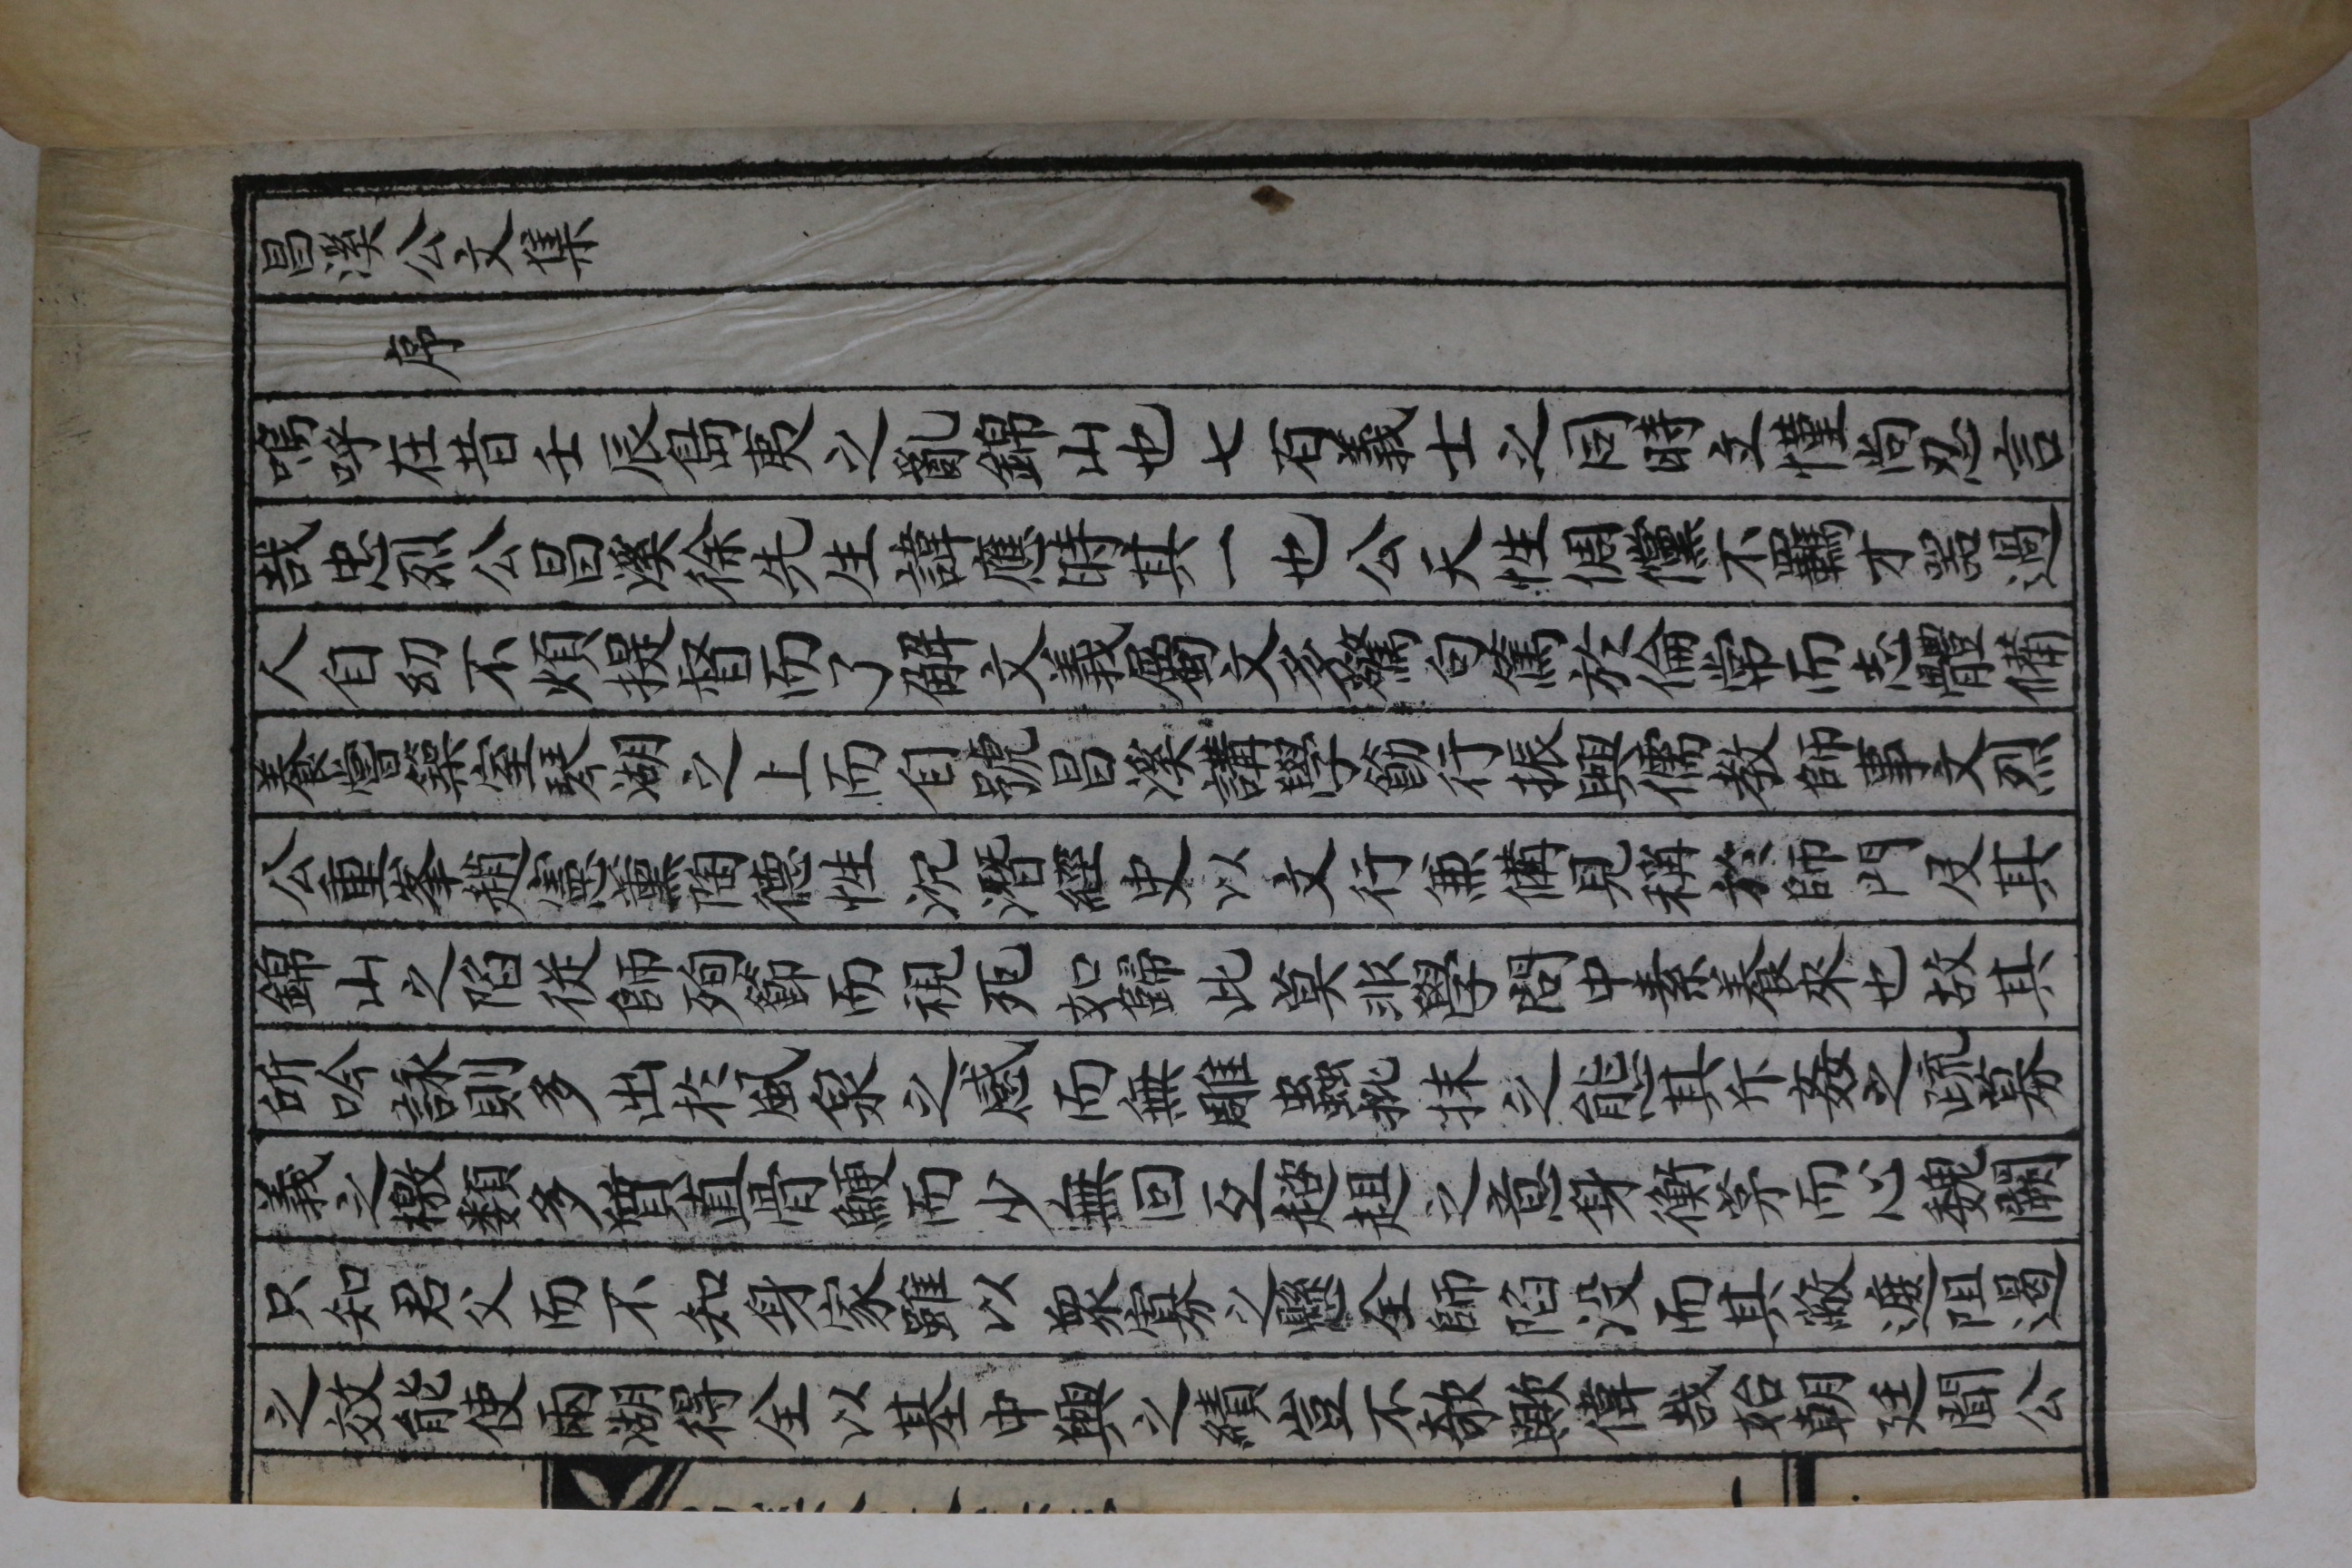 昌溪公文集
序
嗚呼在昔壬辰島夷之亂錦山也七百義士之同時立慬尚忍言
哉忠烈公昌溪徐先生諱應時其一也公天性倜儻不羈才器過
人自幼不煩提督而了解文義屬文多驚句篤於倫常而志體備
養嘗築室琴湖之上而自號昌溪講學飭行振興儒教師事文烈
公重峯趙憲薰陶德性沉潛經史以文行兼備見稱於師門及其
錦山之陷從師殉節而視死如歸比莫非學問中素養來也故其
所吟詠則多出於風泉之感而無雕蟲批抹之態其斥姦之疏募
義之檄類多贊直骨鯁而少無回互趑趄之意身衡茅而心魏闕
只知君父而不知身家雖以衆寡之懸全師陷沒而其蔽遮阻遏
之效能使兩湖得全以基中興之績豈不欹歟偉哉始朝廷聞公